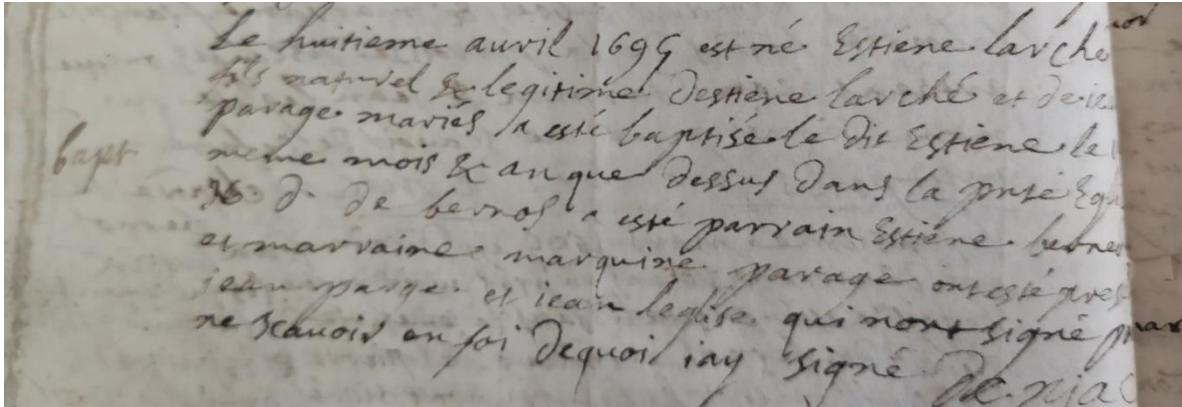 Le huitieme auril 1695 est né Estiene larché
fils naturel & legitime destiene larché et de
parage mariés a esté baptisé le dit Estiene le
bapt
meme mois & an que dessus dans la pnte Egl
de bernos a esté parrain Estiene berne
et marraine marquine parage ont esté pres
jean parge et iean leglise qui nont signé pour
ne scauoir en foi dequoi iay signé